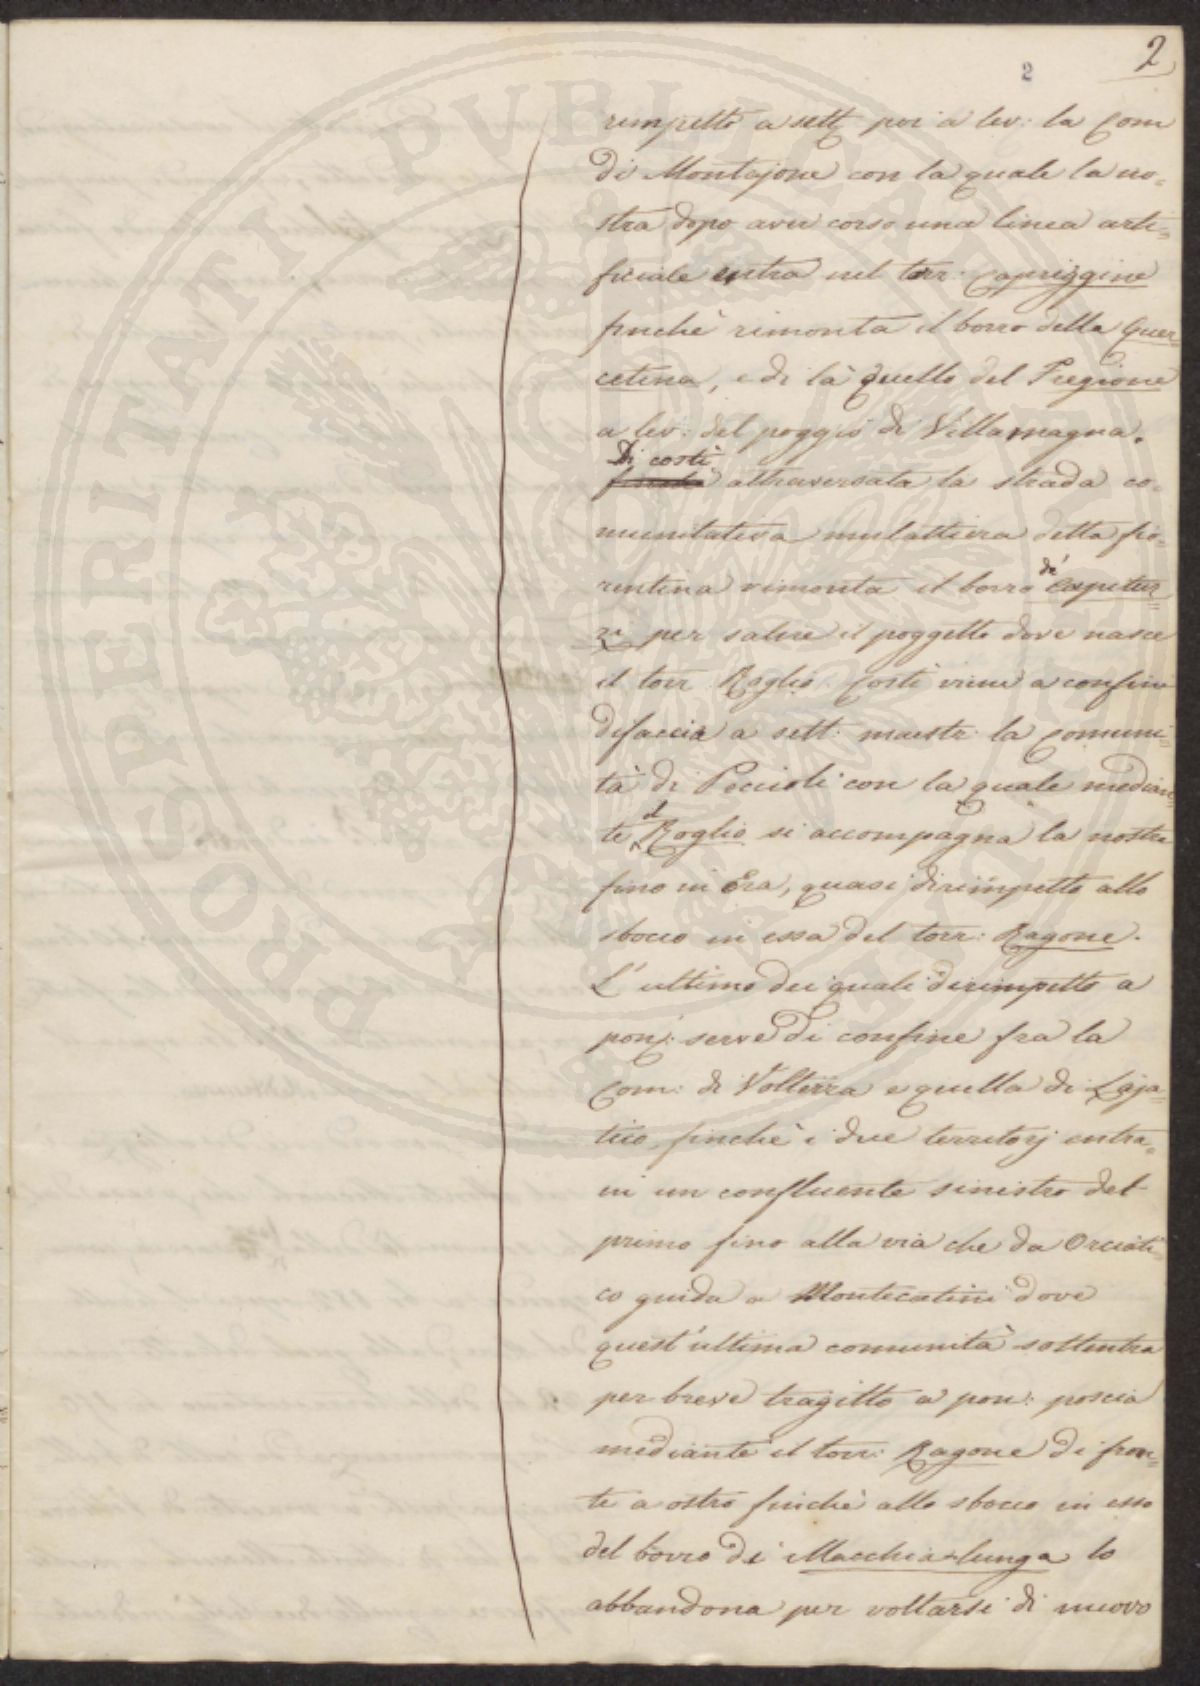 2
2
rimpetto a sett. poi a lev: la Com
di Montajone con la quale la no-
stra dopo aver corso una linea arti-
ficiale entra nel torr: Capriggine
finchè rimonta il borro della Quer-
cetina, e di là quello del Fregione
a lev: del poggio di Villamagna.
Di costì
finchè attraversata la strada co-
munitativa mulattiera detta fio-
rentina rimonta il borro di Caspetur-
zi per salire il poggetto dove nasce
il torr Roglio. Costì viene a confine
difaccia a sett: maestr: la Comuni-
tà di Peccioli con la quale median-
te il Roglio si accompagna la nostra
fino in Era, quasi dirimpetto allo
sbocco in essa del torr: Ragone.
L'ultimo dei quali dirimpetto a
pon: serve di confine fra la
Com: di Volterra e quella di Laja-
tico, finchè i due territorj entra-
in un confluente sinistro del
primo fino alla via che da Orciati-
co guida a Montecatini dove
quest'ultima comunità sottentra
per breve tragitto a pon: poscia
mediante il torr: Ragone di fron-
te a ostro finchè allo sbocco in esso
del borro di Macchia-lunga lo
abbandona per voltarsi di nuovo
PROSPERITATI PVBLICAE